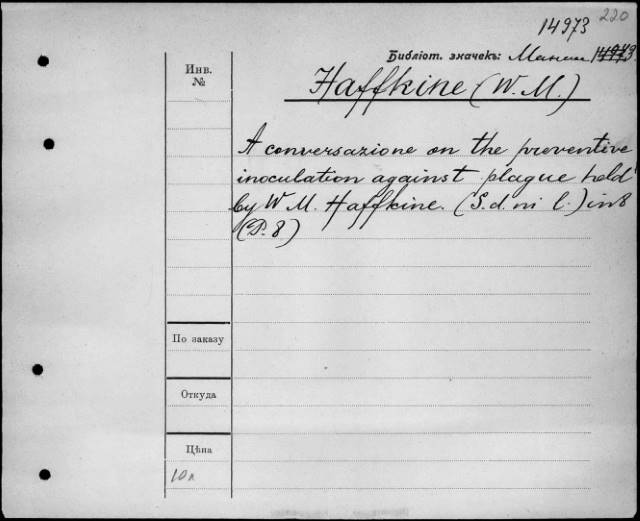 220
14973
Библіот. значекъ:
Инв.
№
Haffkine (W. M.)
A conversazione on the preventive
inoculation against plague held
by W. M. Haffkine. (S. d. ni l.) in 8
(P. 8)
По заказу
Откуда
Цѣна
10 к